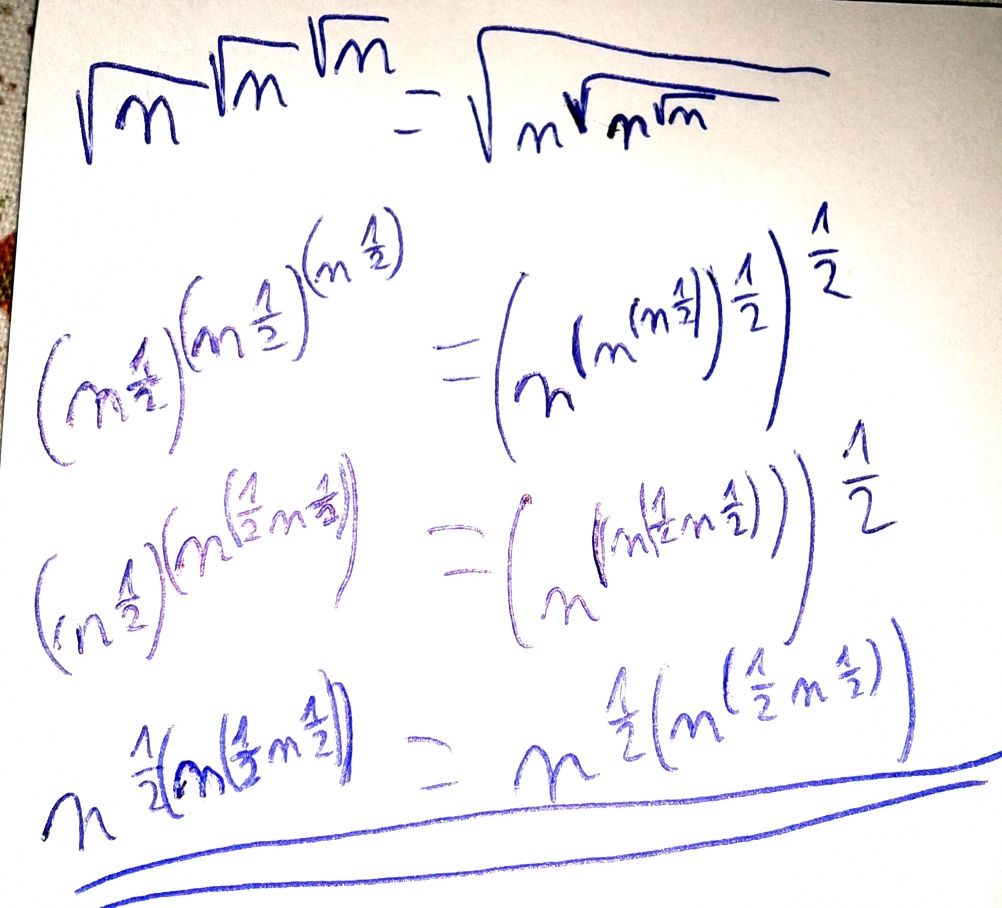 √n^(√n^(√n)) = √(n^(√(n^(√n))))
(n^(1/2))^((n^(1/2))^(n^(1/2))) = (n^((n^(n^(1/2)))^(1/2)))^(1/2)
(n^(1/2))^(n^(1/2 n^(1/2))) = (n^(n^(1/2 n^(1/2))))^(1/2)
n^(1/2(n^(1/2 n^(1/2)))) = n^(1/2(n^(1/2 n^(1/2))))